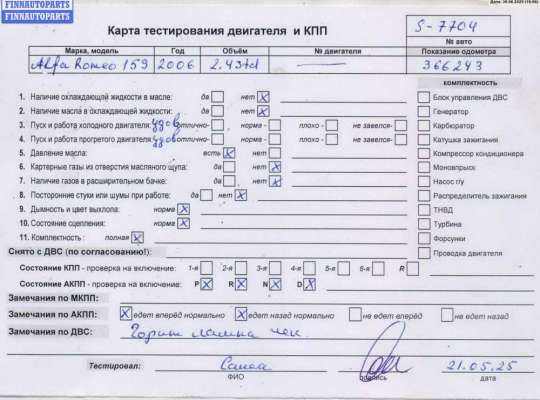 FINNAUTOPARTS
FINNAUTOPARTS
Дата: 30.06.2025 (15:06)
Карта тестирования двигателя и КПП
S-7704
№ авто
Марка, модель Год Объём № двигателя Показание одометра
Alfa Romeo 159 2006 2.4Jtd — 366243
комплектность
1. Наличие охлаждающей жидкости в масле: да нет X Блок управления ДВС
2. Наличие масла в охлаждающей жидкости: да нет X Генератор
3. Пуск и работа холодного двигателя: удов отлично- норма - плохо - не завелся- Карбюратор
4. Пуск и работа прогретого двигателя: удов отлично- норма - плохо - не завелся- Катушка зажигания
5. Давление масла: есть X нет Компрессор кондиционера
6. Картерные газы из отверстия масляного щупа: да нет X Моновпрыск
7. Наличие газов в расширительном бачке: да нет X Насос г/у
8. Посторонние стуки или шумы при работе: да нет X Распределитель зажигания
9. Дымность и цвет выхлопа: норма X ТНВД
10. Состояние сцепления: норма X Турбина
11. Комплектность : полная X Форсунки
Снято с ДВС (по согласованию!): Проводка двигателя
Состояние КПП - проверка на включение: 1-я 2-я 3-я 4-я 5-я 6-я R
Состояние АКПП - проверка на включение: P X R X N X D X
Замечания по МКПП:
Замечания по АКПП: X едет вперёд нормально X едет назад нормально не едет вперёд не едет назад
Замечания по ДВС: Горит лампа чек
Тестировал: Саша 21.05.25
ФИО подпись дата